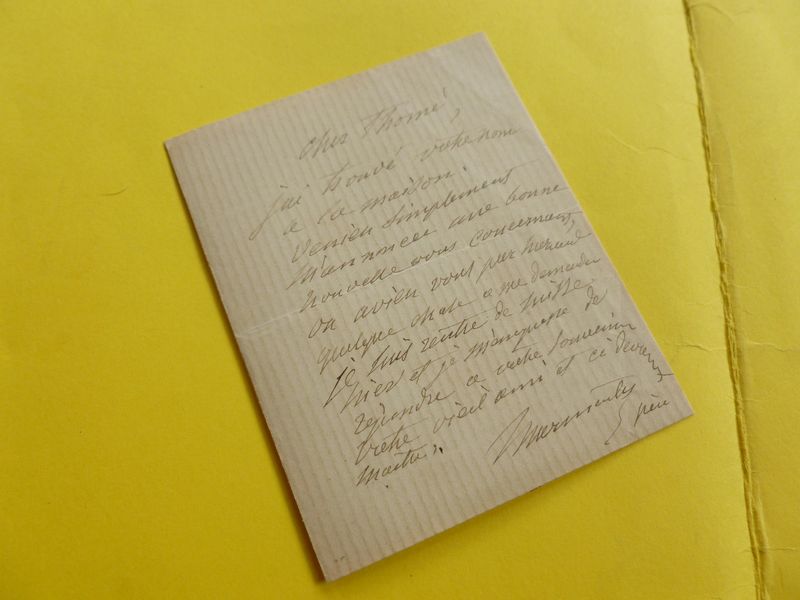 cher Thomé,
j'ai trouvé votre nom
a la maison.
veniez simplement
m'annoncer une bonne
nouvelle vous concernant,
ou aviez vous par hasard
quelque chose a me demander
Je suis rentré de Suisse
hier et je m'empresse de
répondre a votre souvenir
votre vieil ami et ci devant
maître.
Marmontel
père